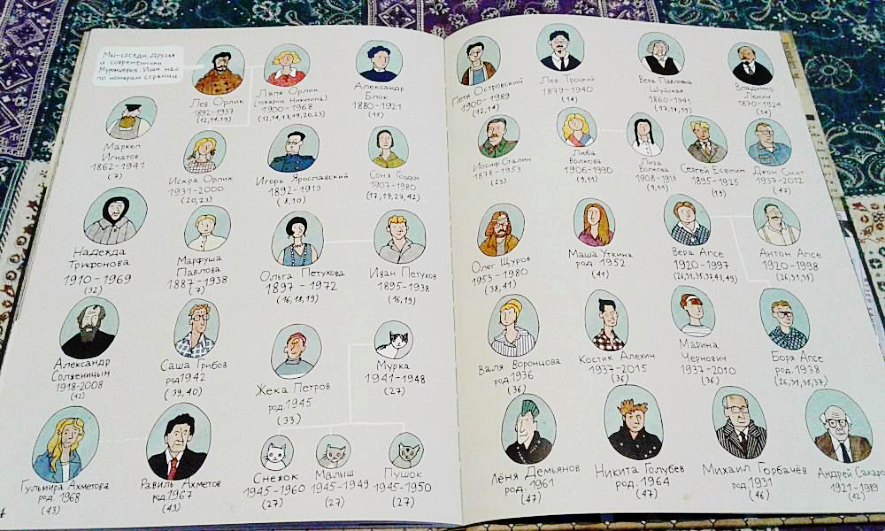 Мы-соседи, друзья
и современники
Муромцевых. Ищи нас
по номерам страниц
Лев Орлик
1892-1937
(12,14,19)
Лёля Орлик
1900-1968
Александр
Блок
1880-1921
(11)
Маркел
Игнатов
1862-1941
(7)
Искра Орлик
1931-2000
(20,23)
Игорь Ярославский
1892-1919
(8,10)
Соня
1907-1980
(17,19,27,42)
Надежда
Трифонова
1910-1969
(32)
Марфуша
Павлова
1887-1938
(7)
Ольга Петухова
1897-1972
(16,18,19)
Иван Петухов
1895-1938
(16,19)
Александр
Солженицын
1918-2008
(42)
Саша Грибов
род.1942
(39,40)
Жека Петров
род.1945
(33)
Мурка
1941-1948
(27)
Гульмира Ахметова
род. 1968
(43)
Равиль Ахметов
род.1967
(43)
Снежок
1945-1960
(27)
Малыш
1945-1949
(27)
Пушок
1945-1950
(27)
Петя Островский
1900-1989
(12,14)
Лев Троцкий
1879-1940
(14)
Вера Павловна
Шуйская
1860-1941
(17,18,19)
Владимир
Ленин
1870-1924
(14)
Иосиф Сталин
1878-1953
(23)
Люка
Волкова
1906-1990
(9,11)
Лиза
Волкова
1908-1918
(9,11)
Сергей Есенин
1895-1925
Джон Смит
1937-2012
(47)
Олег Щуров
1953-1980
(38,41)
Маша Уткина
род.1952
(41)
Вера Апсе
1920-1997
Антон Апсе
1920-1998
(26,31,35)
Валя Воронцова
род.1936
(36)
Костик Алёхин
1937-2015
(36)
Марина
Чернович
1937-2010
(36)
Боря Апсе
род.1938
(26,31,35,37)
Лёня Демьянов
род.1961
(47)
Никита Голубев
род.1964
(47)
Михаил Горбачёв
род.1931
(46)
Андрей Сахаров
1921-1989
(42)